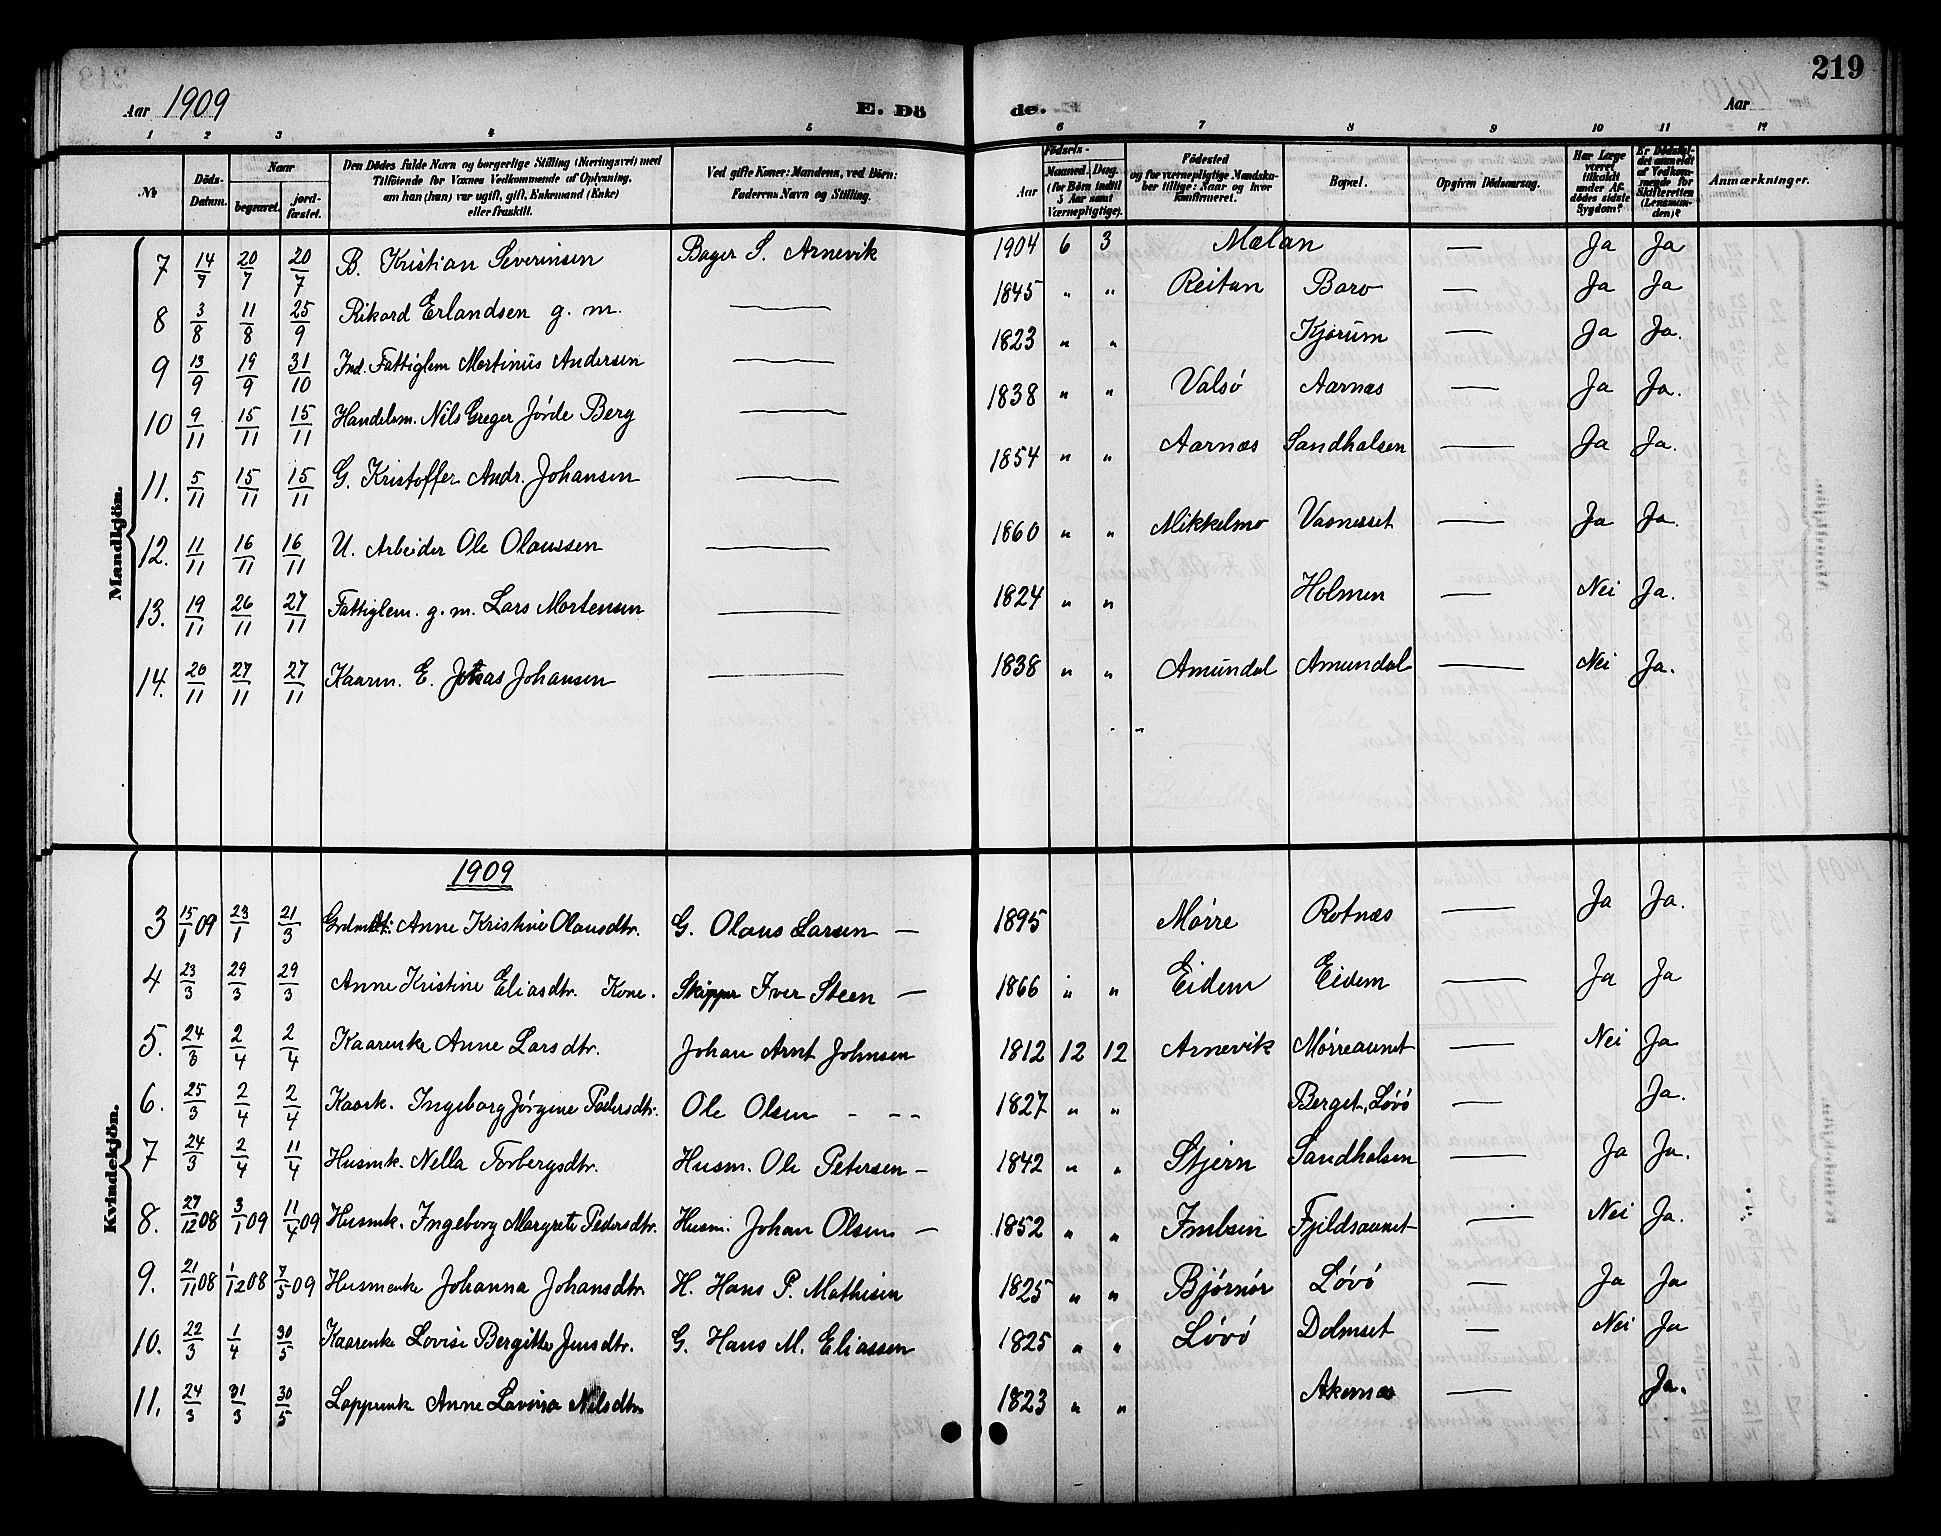 219
Aar 1909 E. Dö de. Aar
1 2 3 4 5 6 7 8 9 10 11 12
№ Döds-Datum. Naar begravet. jord-fæstet. Den Dödes fulde Navn og borgerlige Stilling (Næringsvei) med Tilföiende for Voxnes Vedkommende af Oplysning, om han (hun) var ugift, gift, Enkemand (Enke) eller fraskilt. Ved gifte Koner: Mandens, ved Börn: Faderens Navn og Stilling. Födsels- Aar Maaned. Dag. (for Börn indtil 5 Aar samt Værnepligtige). Födested og for værnepligtige Mandskaber tillige: Naar og hvor konfirmeret. Bopæl. Opgiven Dödsaarsag. Har Læge været tilkaldt under Afdödes sidste Sygdom? Er Dödsfaldet anmeldt af Vedkommende for Skifteretten (Lensmanden)? Anmærkninger.
Mandkjön.
7 14/7 20/7 20/7 B. Kristian Severinsen Bager S. Arnevik 1904 6 3 Mælan — Ja Ja
8 3/8 11/8 25/9 Rikard Erlandsen g. m. — 1845 " " Reitan Barø — Ja Ja
9 13/9 19/9 31/10 Ind. Fattiglem Martinus Andersen — 1823 " " Kjørum — Ja Ja.
10 9/11 15/11 15/11 Handelsm. Nils Greger Jörde Berg — 1838 " " Valsö Aarnæs — Ja Ja.
11. 5/11 15/11 15/11 G. Kristoffer Andr. Johansen — 1854 " " Aarnæs Sandhalsen — Ja Ja.
12. 11/11 16/11 16/11 U. Arbeider Ole Olaussen — 1860 " " Mikkelmo Vasnesset — Ja Ja.
13. 19/11 26/11 27/11 Fattiglem. g. m. Lars Mortensen — 1824 " " Holmen — Nei Ja.
14. 20/11 27/11 27/11 Kaarm. E. Johansen — 1838 " " Amundal Amundal — Nei Ja.
Kvindekjön.
1909
3 15/1 09 23/1 21/3 Anne Kristine Olausdtr. G. Olaus Larsen — 1895 Mörre Rotnæs — Ja Ja.
4 23/3 29/3 29/3 Anne Kristine Eliasdtr. Kone. Skipper Iver Steen — 1866 " " Eidem Eidem — Ja Ja
5. 24/3 2/4 2/4 Kaarenke Anne Larsdtr. Johan Arnt Johnsen 1812 12 12 Arnevik Mörreaunet — Nei Ja
6. 25/3 2/4 2/4 Kaark. Ingeborg Jörgine Pedersdtr. Ole Olsen - -- 1827 " " Berget, Lövö — Ja.
7 24/3 2/4 11/4 Husmk. Nella Torbergsdtr. Husm. Ole Petersen — 1842 " " Stjern Sandhalsen — Ja Ja.
8. 27/12 08 3/1 09 11/4 09 Husmk. Ingeborg Margrete Pedersdtr. Husm. Johan Olsen — 1852 " " Imlsen Fjeldsaunet — Nei Ja.
9. 21/11 08 1/12 08 7/5 09 Husmenke Johanna Johansdtr. H. Hans P. Mathisen 1825 " " Björnör Lövö — Ja Ja
10. 22/3 1/4 30/5 Kaarenke Lovise Bergitte Jensdtr. G. Hans M. Eliassen 1825 " " Lövö Dolmset — Nei Ja
11. 24/3 31/3 30/5 Lappenk Anne Lovisa Nilsdtr 1823 " " Akernæs — Ja.